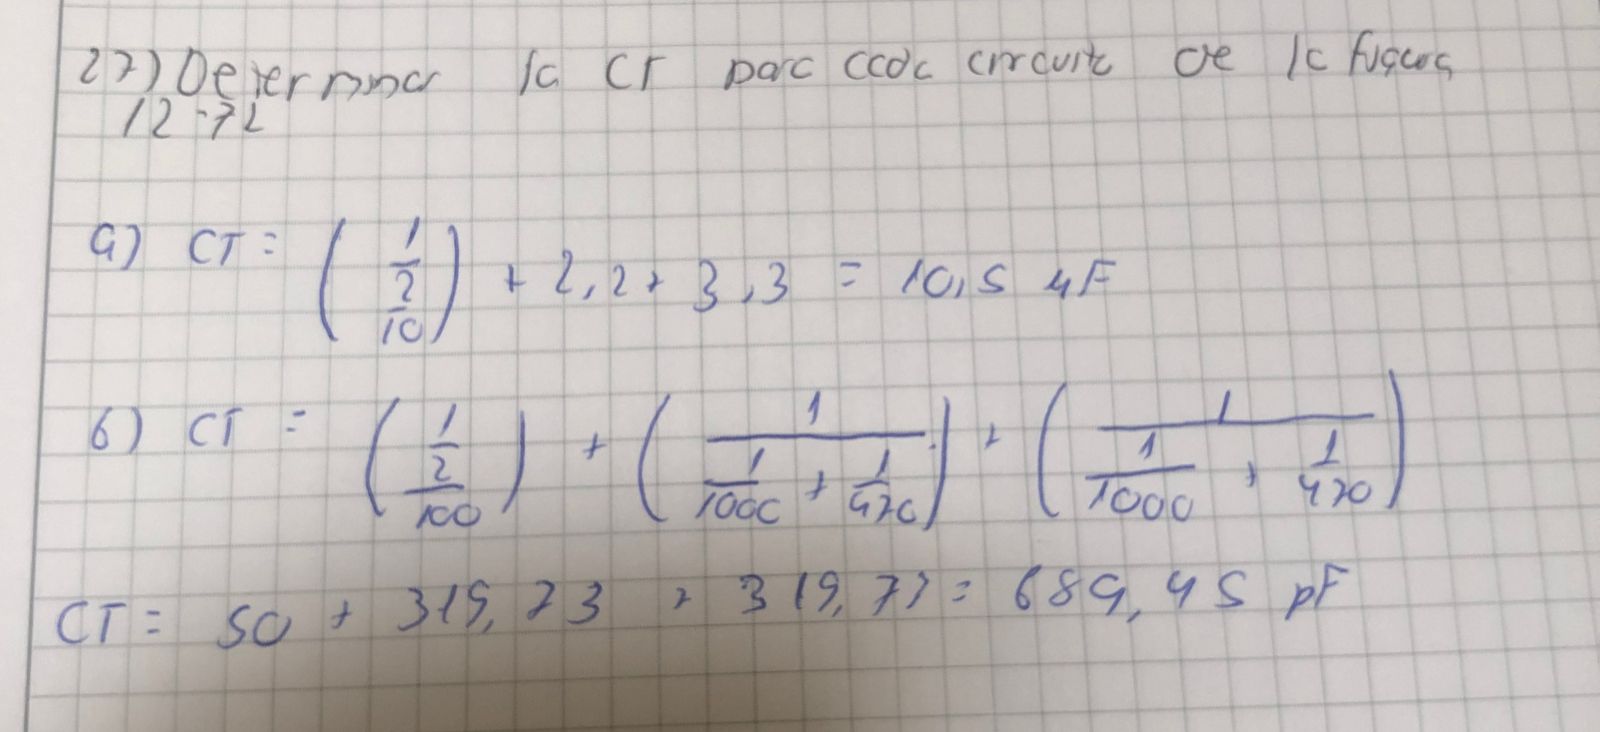 27) Determinar la CT para cada circuito de la figura
12-72
a) CT = ( 1 / (2/10) ) + 2,2 + 3,3 = 10,5 μF
b) CT = ( 1 / (2/100) ) + ( 1 / (1/1000 + 1/470) ) + ( 1 / (1/1000 + 1/470) )
CT = 50 + 319,73 + 319,73 = 689,45 pF